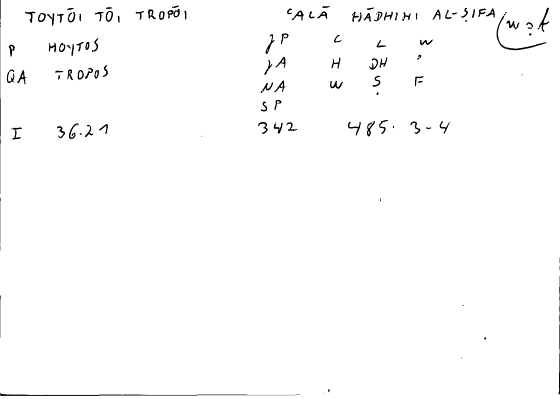 TOYTŌI TŌI TROPŌI ʿALĀ HĀDHIHI AL-ṢIFA w?k
P HOYTOS JP C L W
QA TROPOS JA H DH ʾ
NA W Ṣ F
SP
I 36.21 342 485. 3-4